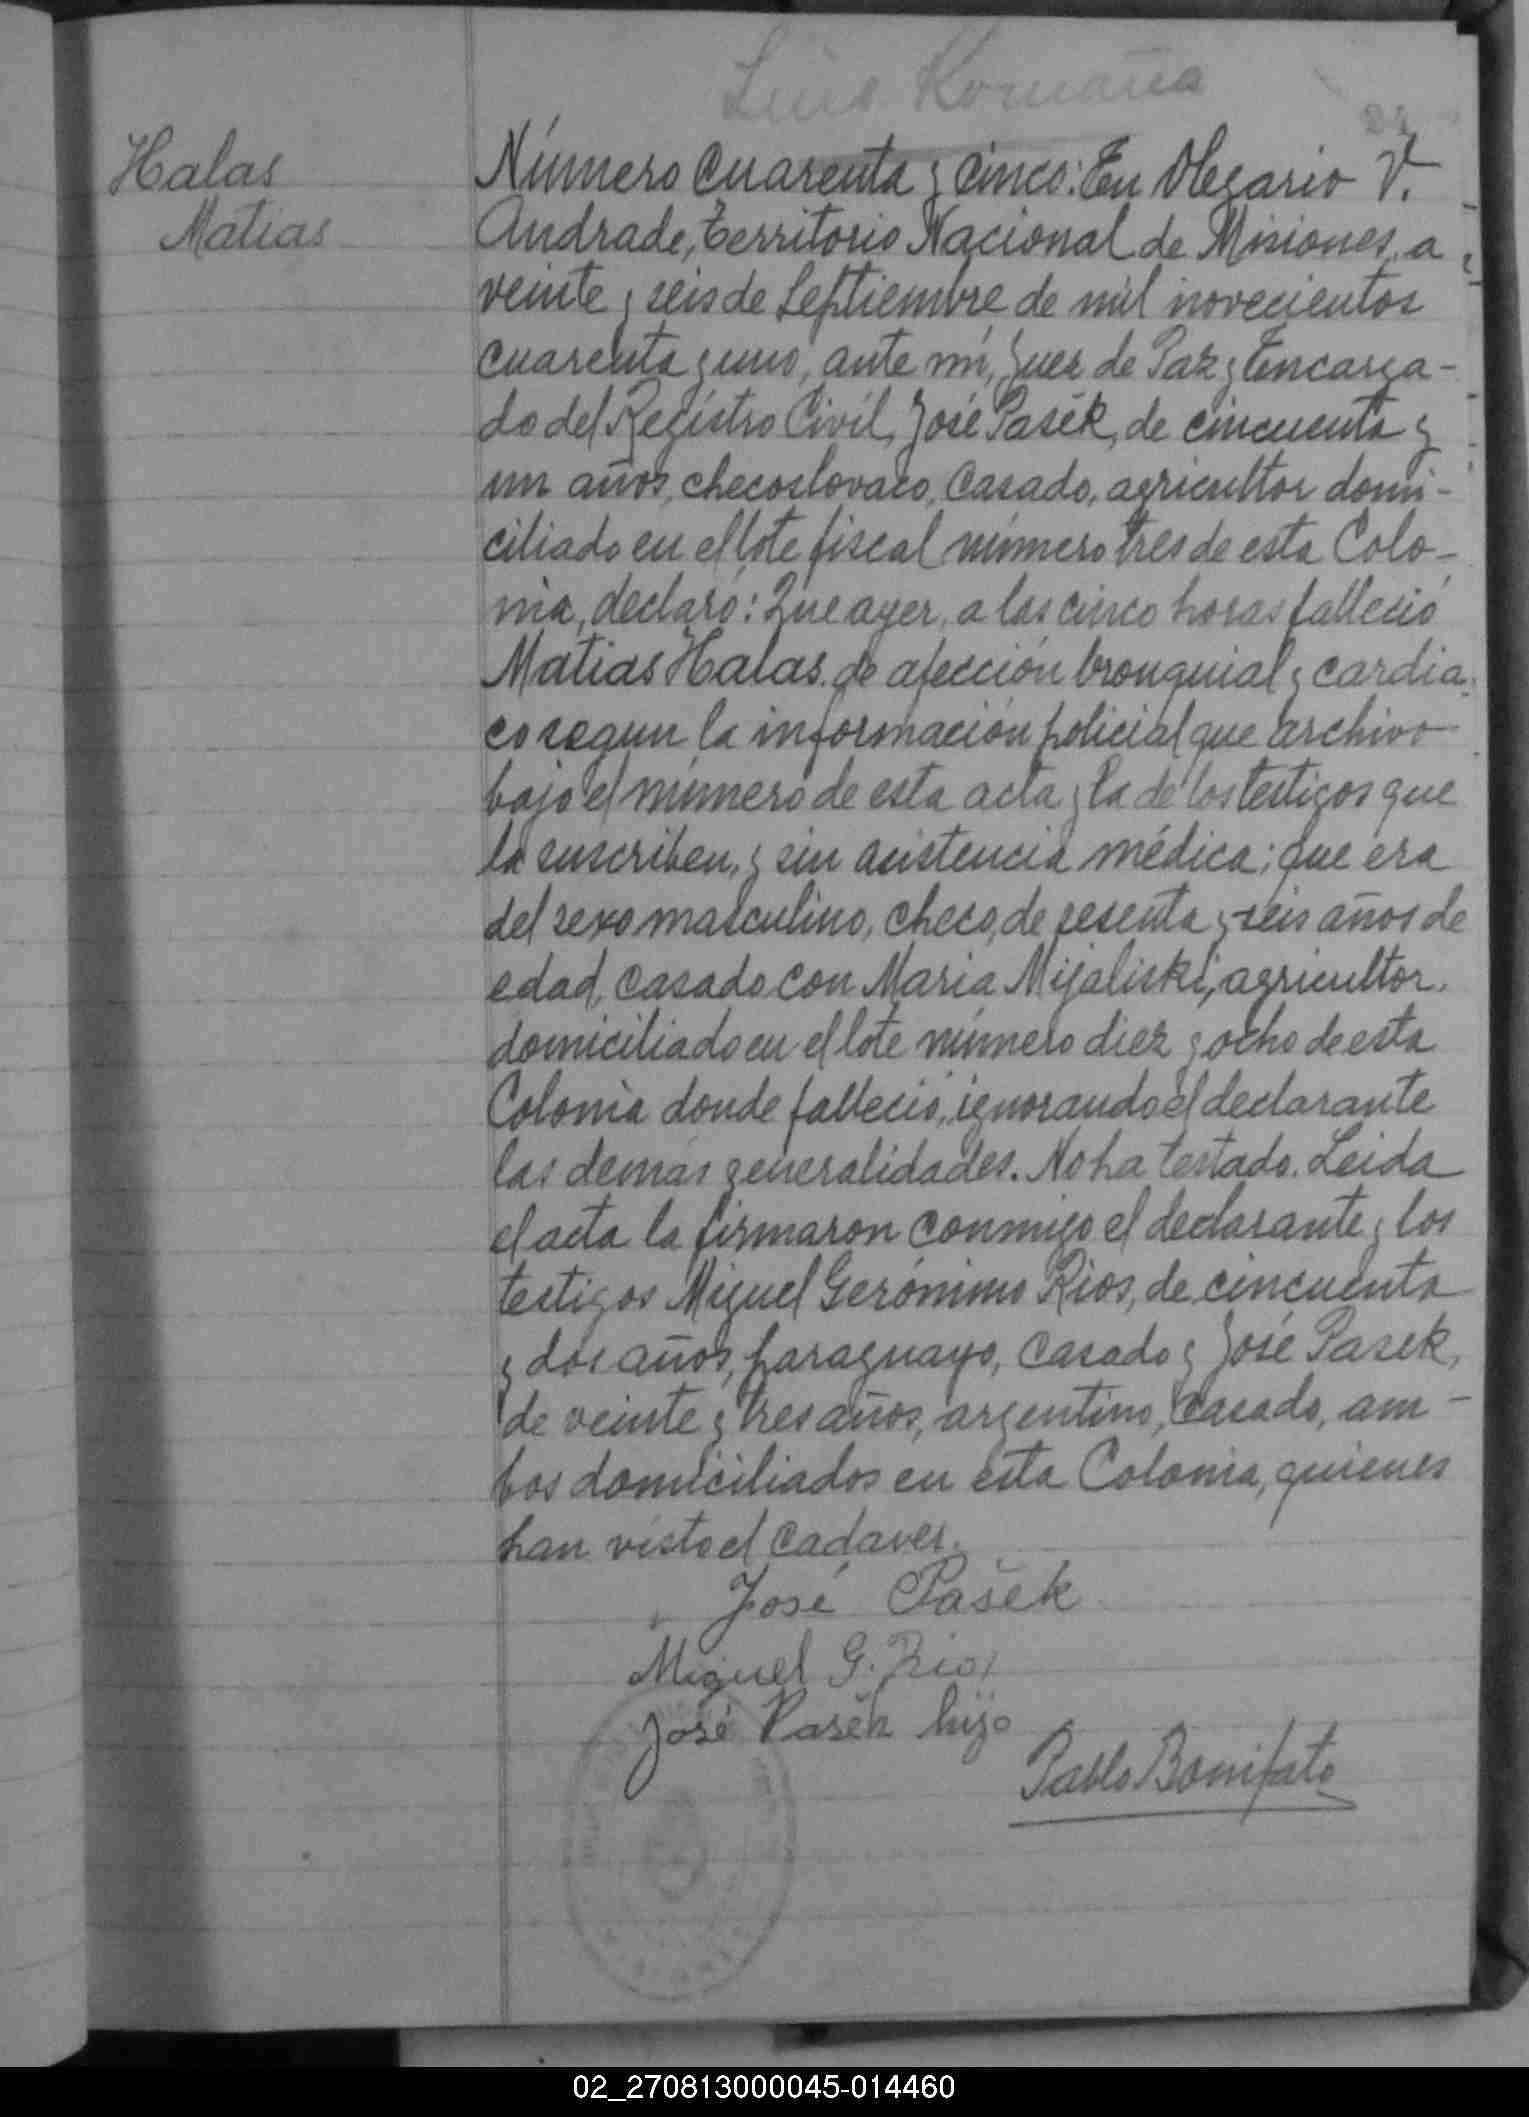 Halas
Matias
Número Cuarenta y cinco: En Olegario V.
Andrade, Territorio Nacional de Misiones, a
veinte y seis de Septiembre de mil novecientos
cuarenta y uno, ante mí, Juez de Paz y Encarga-
do del Registro Civíl, José Pasek, de cincuenta y
un años, checoslovaco, casado, agricultor domi-
ciliado en el lote fiscal número tres de esta Colo-
nia, declaró: Que ayer, a las cinco horas falleció
Matias Halas de afección bronquial y cardia-
co segun la información policial que archivo
bajo el número de esta acta y la de los testigos que
la suscriben, y sin asistencia médica; que era
del sexo masculino, checo, de sesenta y seis años de
edad, casado con Maria Mijaliski, agricultor,
domiciliado en el lote número diez y ocho de esta
Colonia donde falleció, ignorando el declarante
las demás generalidades. No ha testado. Leida
el acta la firmaron conmigo el declarante y los
testigos Miguel Gerónimo Rios, de cincuenta
y dos años, paraguayo, casado y José Pasek,
de veinte y tres años, argentino, casado, am-
bos domiciliados en esta Colonia, quienes
han visto el cadaver.
José Pašek
Miguel G. Rios
José Pašek hijo
Pablo Bonifato
02_270813000045-014460